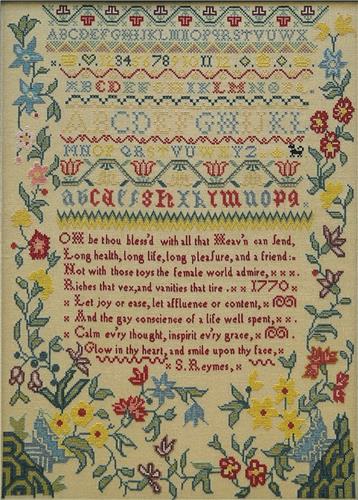 ABCDEFGHIJKLMNOPQRSTUVWX
12 34 56 78 9 10 11 12
ABCDEFGHIKLMNOPQ
ABCDEFGHIKL
MNOPQRSTVUWXYZ
abcdefshiklmnopq
O be thou bless'd with all that Heav'n can send,
Long health, long life, long pleasure, and a friend:
Not with those toys the female world admire,
Riches that vex, and vanities that tire .. 1770
Let joy or ease, let affluence or content,
And the gay conscience of a life well spent,
Calm ev'ry thought, inspirit ev'ry grace,
Glow in thy heart, and smile upon thy face,
S. Reymes,